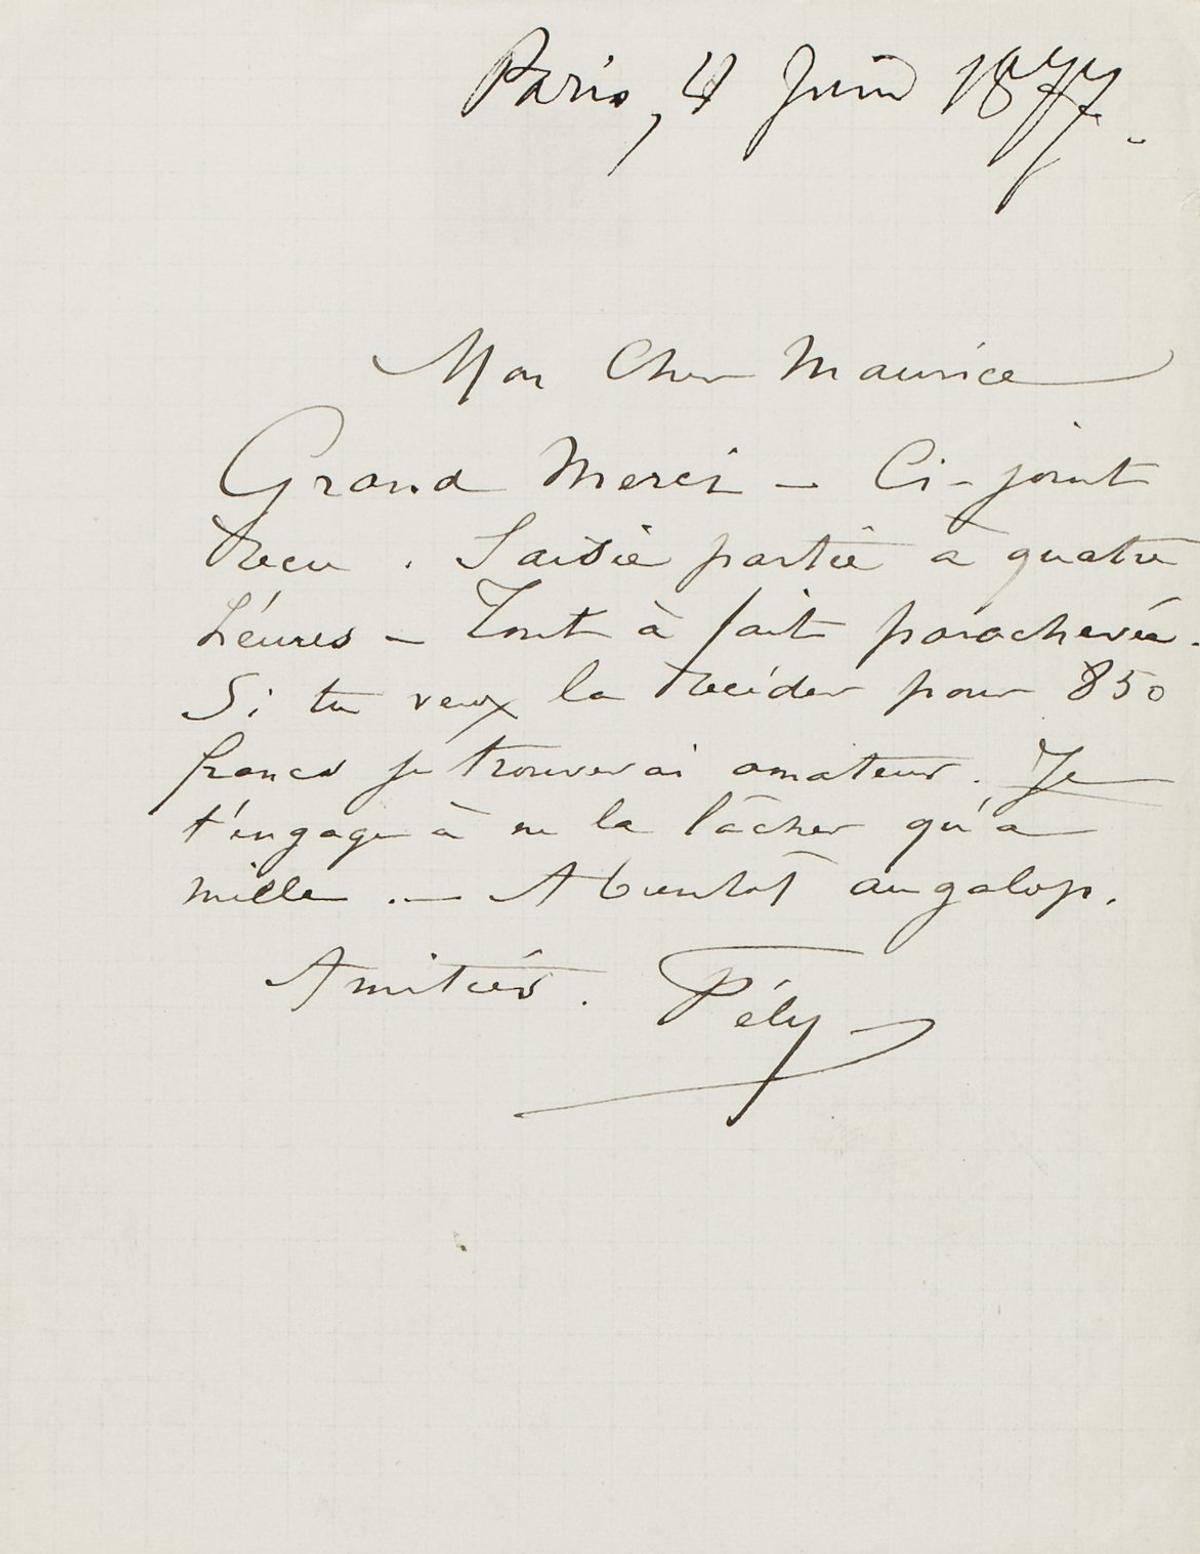 Paris, 4 Juin 1877.
Mon Cher Maurice
Grand Merci - Ci-joint
recu. Saisie partie à quatre
héures - Tout à fait parachevée.
Si tu veux la recéder pour 850
francs je trouverai amateur. Je
t'engage à ne la lâcher qu'à
mille. - A bientôt au galop.
Amitiés. Pély